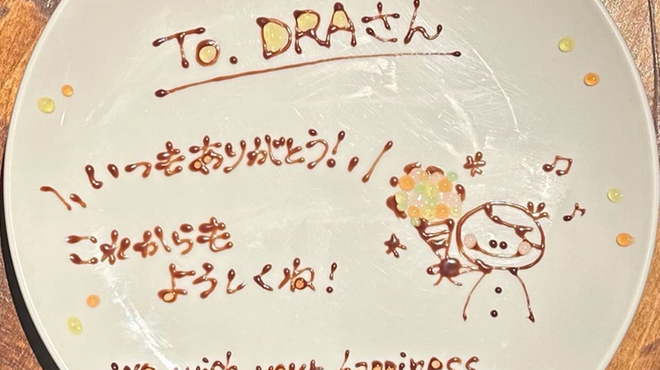 To. DRAさん
\\いつもありがとう!//
これからも
よろしくね!
we wish your happiness